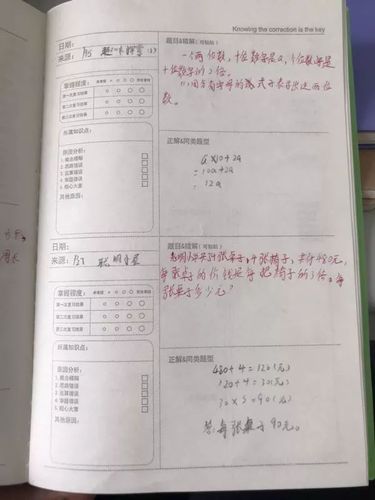 Knowing the correction is the key
日期:
来源:
题目&错解(可粘贴)
一个两位数,十位数字是a,个位数字是
十位数字的2倍。
(1)用含有字母的式子表示出这两位
数。
掌握程度:
第一次复习结果
第二次复习结果
第三次复习结果
所属知识点:
原因分析:
1. 概念模糊
2. 思路错误
3. 运算错误
4. 审题错误
5. 粗心大意
其他原因:
正解&同类题型
a×10+2a
=10a+2a
=12a
日期:
来源:
题目&错解(可粘贴)
每张桌子的价钱是每把椅子的3倍,每
张桌子多少元?
掌握程度:
第一次复习结果
第二次复习结果
第三次复习结果
所属知识点:
原因分析:
1. 概念模糊
2. 思路错误
3. 运算错误
4. 审题错误
5. 粗心大意
其他原因:
正解&同类题型
480÷4=120(元)
120÷4=30(元)
30×3=90(元)
答:每张桌子90元。